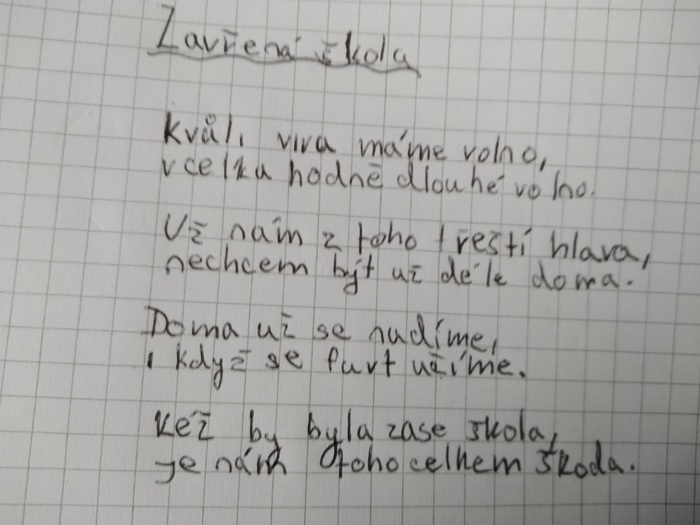 Zavřená škola
Kvůli viru máme volno,
vcelku hodně dlouhé volno.
Už nám z toho třeští hlava,
nechcem být už déle doma.
Doma už se nudíme,
i když se furt učíme.
Kéž by byla zase škola,
je nám toho celkem škoda.